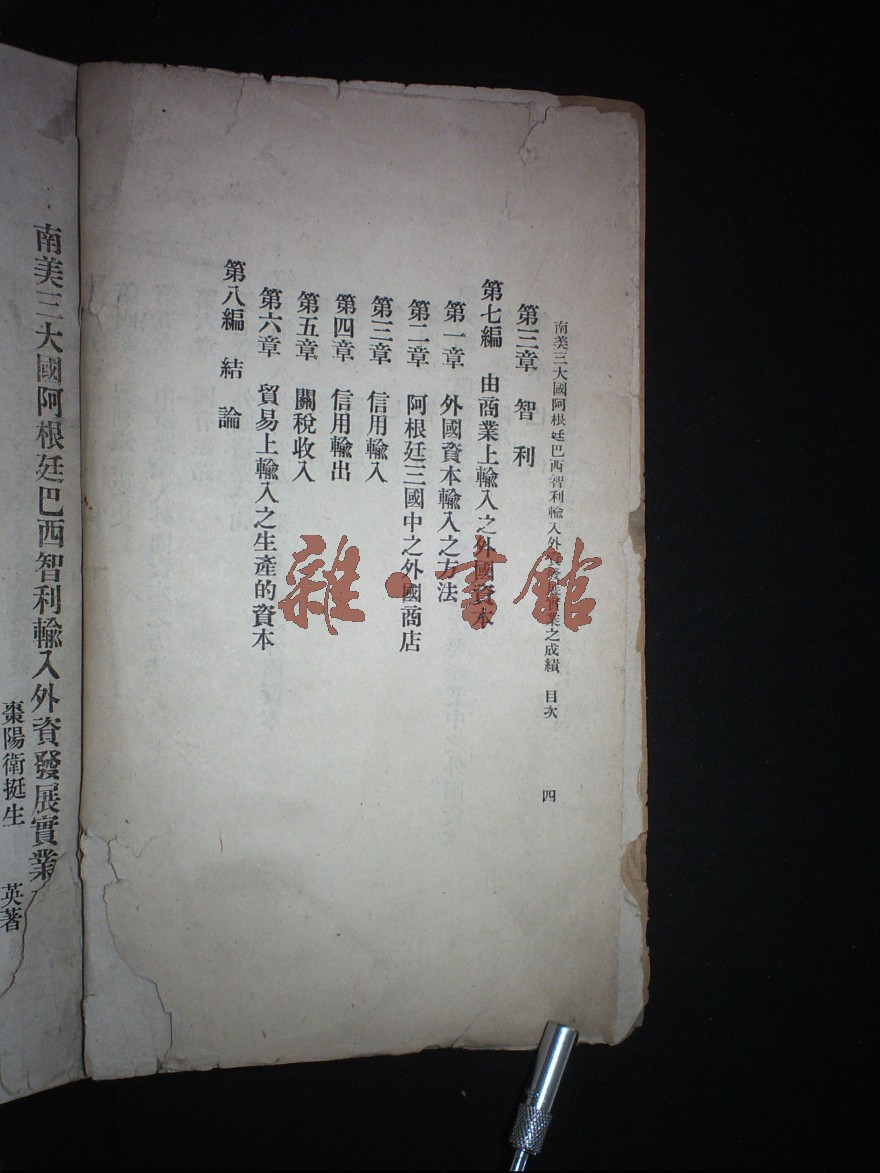 南美三大國阿根廷巴西智利輸入外資發展實業之成績 目次 四
第三章 智利
第七編 由商業上輸入之外國資本
第一章 外國資本輸入之方法
第二章 阿根廷三國中之外國商店
第三章 信用輸入
第四章 信用輸出
第五章 關稅收入
第六章 貿易上輸入之生產的資本
第八編 結論
南美三大國阿根廷巴西智利輸入外資發展實業
棗陽衛挺生 英著
雜·書館